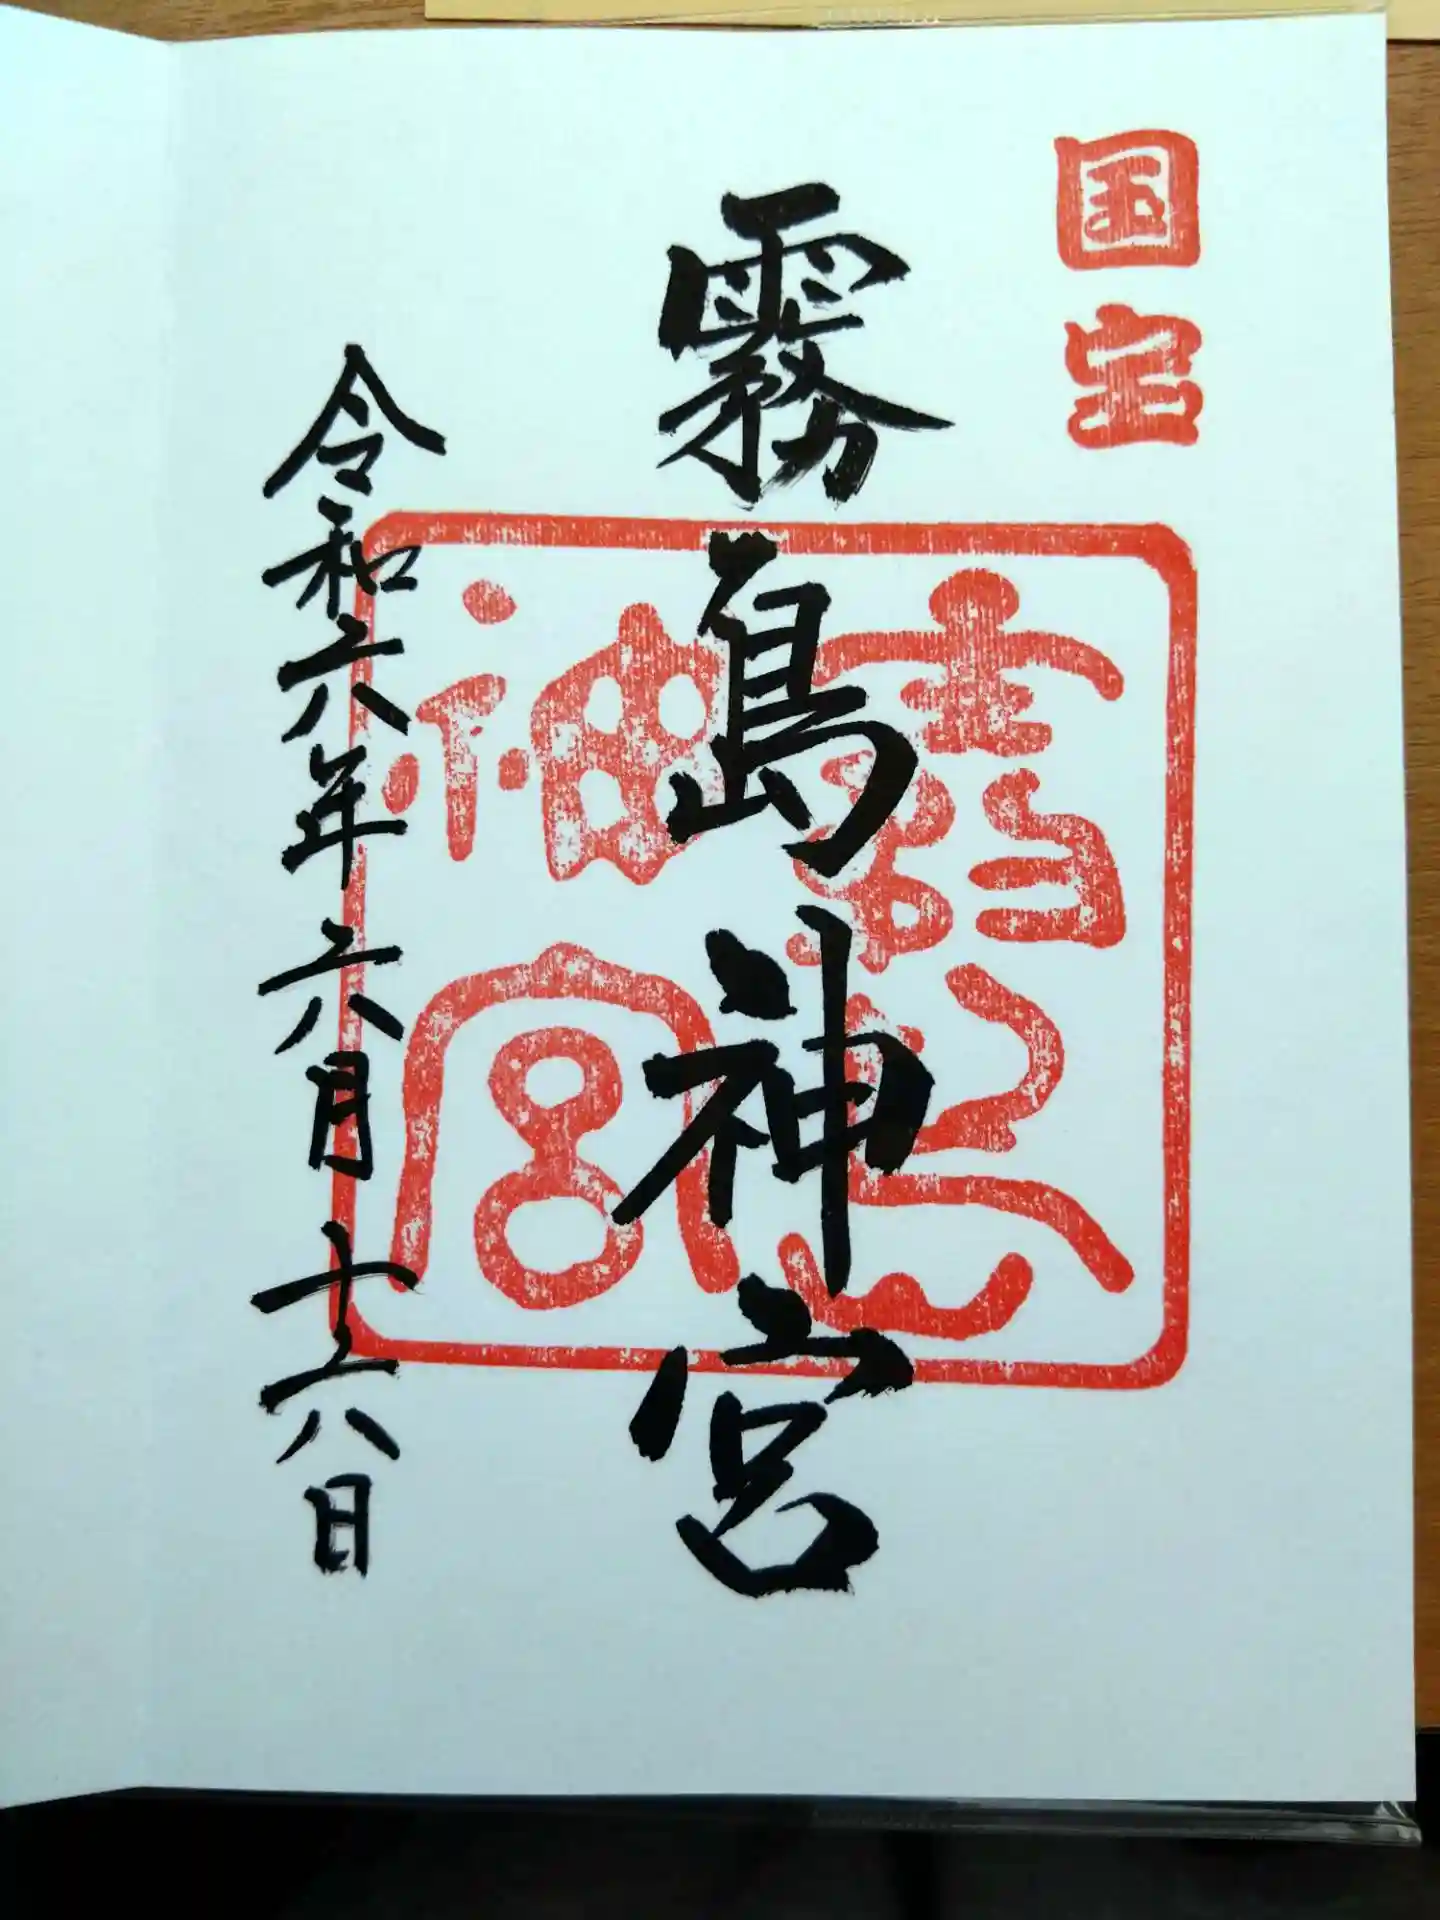 国宝
霧島神宮
霧島
神宮
令和六年六月十六日